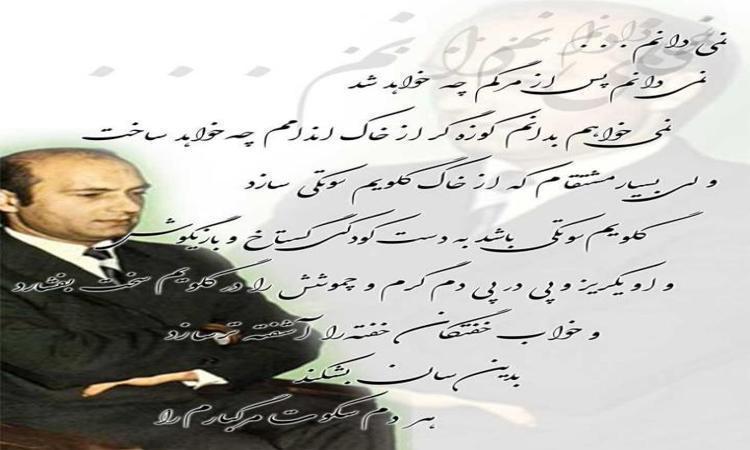 نمی دانم . . .
نمی دانم پس از مرگم چه خواهد شد
نمی خواهم بدانم کوزه گر از خاک اندامم چه خواهد ساخت
ولی بسیار مشتاقم که از خاک گلویم سوتکی سازد
گلویم سوتکی باشد به دست کودکی گستاخ و بازیگوش
و او یکریز و پی در پی دم گرم و چموشش را در گلویم سخت بفشارد
و خواب خفتگان خفته را آشفته تر سازد
بدین سان بشکند
هر دم سکوت مرگبارم را